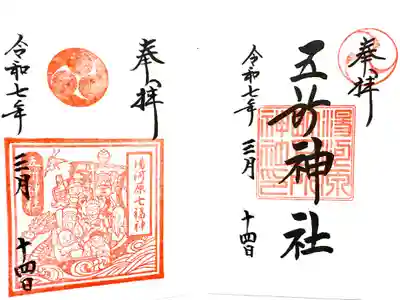 奉拝
五所神社
令和七年 三月 十四日
湯河原
神社
奉拝
令和七年 三月 十四日
湯河原七福神